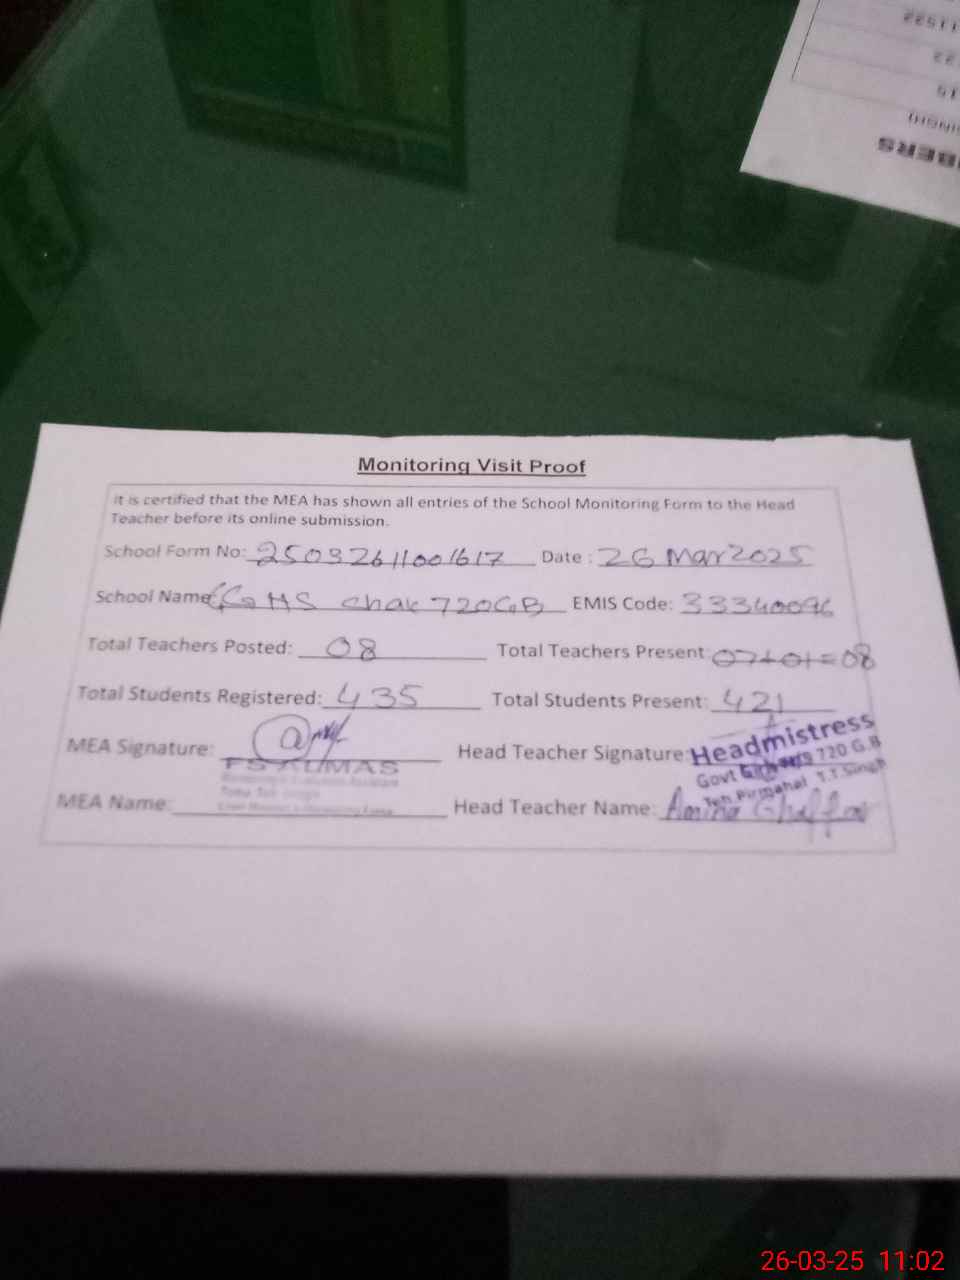 Monitoring Visit Proof
It is certified that the MEA has shown all entries of the School Monitoring Form to the Head
Teacher before its online submission.
School Form No: 25032611001617 Date : 26 Mar 2025
School Name: GGHS Chak 720GB EMIS Code: 33340096
Total Teachers Posted: 08 Total Teachers Present: 07+01=08
Total Students Registered: 435 Total Students Present: 421
MEA Signature: Head Teacher Signature: Headmistress
Govt 720 G.B
Teh Pirmahal T.T.Singh
MEA Name: Head Teacher Name: Amina Ghaffar
26-03-25 11:02